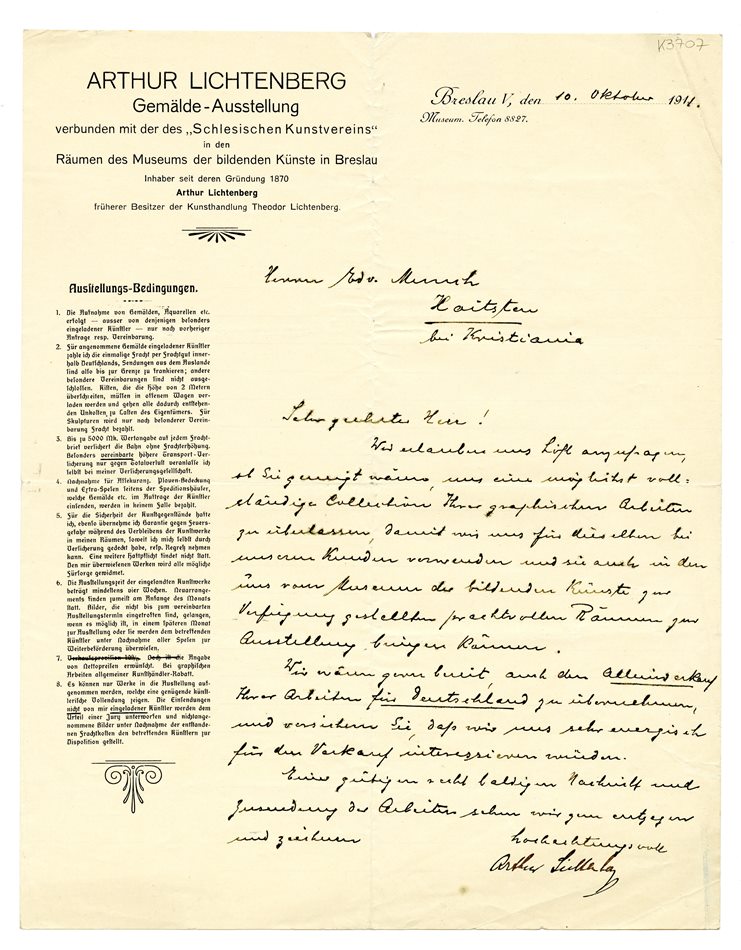 K3707
ARTHUR LICHTENBERG
Gemälde-Ausstellung
verbunden mit der des „Schlesischen Kunstvereins“
in den
Räumen des Museums der bildenden Künste in Breslau
Inhaber seit deren Gründung 1870
Arthur Lichtenberg
früherer Besitzer der Kunsthandlung Theodor Lichtenberg.
Breslau V, den 10. Oktober 1911.
Museum. Telefon 8827.
Ausstellungs-Bedingungen.
1. Die Aufnahme von Gemälden, Aquarellen etc.
erfolgt — ausser von denjenigen besonders
eingeladener Künstler — nur nach vorheriger
Anfrage resp. Vereinbarung.
2. Für angenommene Gemälde eingeladener Künstler
zahle ich die einmalige Fracht per Frachtgut inner-
halb Deutschlands, Sendungen aus dem Auslande
sind also bis zur Grenze zu frankieren; andere
besondere Vereinbarungen sind nicht ausge-
schlossen. Kisten, die die Höhe von 2 Metern
überschreiten, müssen in offenem Wagen ver-
laden werden und gehen alle dadurch entstehen-
den Unkosten zu Lasten des Eigentümers. Für
Skulpturen wird nur nach besonderer Verein-
barung Fracht bezahlt.
3. Bis zu 5000 Mk. Wertangabe auf jedem Fracht-
brief versichert die Bahn ohne Frachterhöhung.
Besonders vereinbarte höhere Transport-Ver-
sicherung nur gegen Totalverlust veranlasse ich
selbst bei meiner Versicherungsgesellschaft.
4. Nachnahme für Assekuranz, Plauen-Bedeckung
und Extra-Spesen seitens der Speditionshäuser,
welche Gemälde etc. im Auftrage der Künstler
einsenden, werden in keinem Falle bezahlt.
5. Für die Sicherheit der Kunstgegenstände hafte
ich, ebenso übernehme ich Garantie gegen Feuers-
gefahr während des Verbleibens der Kunstwerke
in meinen Räumen, soweit ich mich selbst durch
Versicherung gedeckt habe, resp. Regreß nehmen
kann. Eine weitere Haftpflicht findet nicht statt.
Den mir überwiesenen Werken wird alle mögliche
Fürsorge gewidmet.
6. Die Ausstellungszeit der eingesandten Kunstwerke
beträgt mindestens vier Wochen. Neuarrange-
ments finden zumeist am Anfange des Monats
statt. Bilder, die nicht bis zum vereinbarten
Ausstellungstermin eingetroffen sind, gelangen,
wenn es möglich ist, in einem späteren Monat
zur Ausstellung oder sie werden dem betreffenden
Künstler unter Nachnahme aller Spesen zur
Weiterbeförderung überwiesen.
7. Verkaufsprovision 10%. Doch ist die Angabe
von Nettopreisen erwünscht. Bei graphischen
Arbeiten allgemeiner Kunsthändler-Rabatt.
8. Es können nur Werke in die Ausstellung auf-
genommen werden, welche eine genügende künst-
lerische Vollendung zeigen. Die Einsendungen
nicht von mir eingeladener Künstler werden dem
Urteil einer Jury unterworfen und nichtange-
nommene Bilder unter Nachnahme der entstande-
nen Frachtkosten den betreffenden Künstlern zur
Disposition gestellt.
Herrn Edv. Munch
Hvitsten
bei Kristiania
Sehr geehrter Herr!
Wir erlauben uns höfl. anzufragen,
ob Sie geneigt wären, uns eine möglichst voll-
ständige Collection Ihrer graphischen Arbeiten
zu überlassen, damit wir uns für dieselben bei
unseren Kunden verwenden und sie auch in den
uns vom Museum der bildenden Künste zur
Verfügung gestellten prachtvollen Räumen zur
Ausstellung bringen können.
Wir wären gern bereit, auch den Alleinverkauf
Ihrer Arbeiten für Deutschland zu übernehmen,
und versichern Sie, daß wir uns sehr energisch
für den Verkauf interessieren würden.
Einer gütigen recht baldigen Nachricht und
Zusendung der Arbeiten sehen wir gern entgegen
und zeichnen
hochachtungsvoll
Arthur Lichtenberg